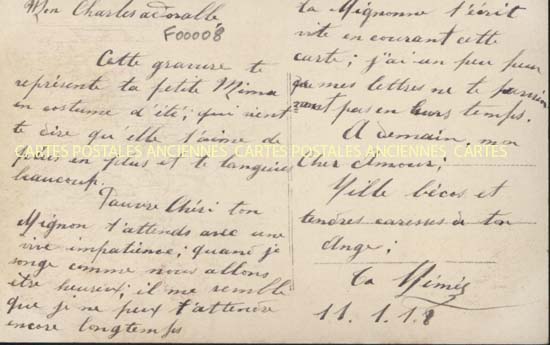 Mon Charles adorable
F00008
Cette gravure te
représente ta petite Mimie
en costume d'été; qui vient
te dire qu'elle t'aime de
plus en plus et te languis
beaucoup.
Pauvre Chéri ton
Mignon t'attends avec une
vive impatience; quand je
songe comme nous allons
être heureux; il me semble
que je ne peux t'attendre
encore longtemps
ta Mignonne t'écrit
vite en courant cette
carte; j'ai un peu peur
que mes lettres ne te
pas en leurs temps.
A demain, mon
Cher Amour;
Mille bécos et
tendres caresses à ton
Ange;
Ta Mimie
11.1.18
CARTES POSTALES ANCIENNES CARTES POSTALES ANCIENNES CARTES POSTALES ANCIENNES CARTES